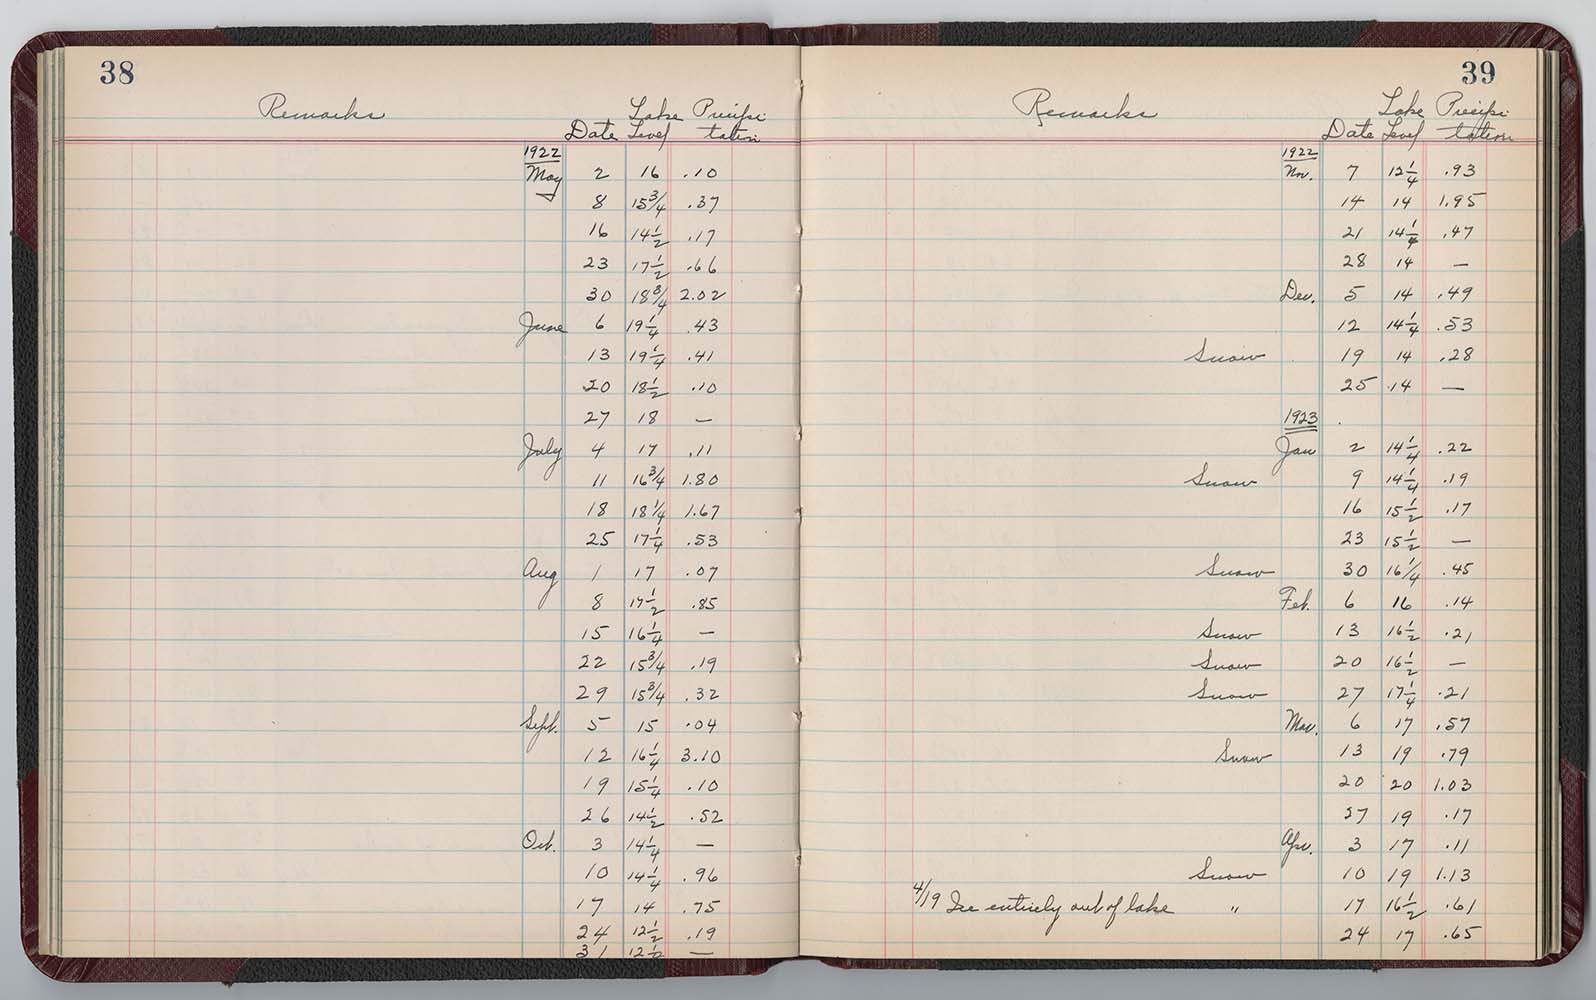 38
Remarks Date Lake Level Precipitation
1922
May 2 16 .10
8 15 3/4 .37
16 14 1/2 .17
23 17 1/2 .66
30 18 3/4 2.02
June 6 19 1/4 .43
13 19 1/4 .41
20 18 1/2 .10
27 18 —
July 4 17 .11
11 16 3/4 1.80
18 18 1/4 1.67
25 17 1/4 .53
Aug 1 17 .07
8 17 1/2 .85
15 16 1/4 —
22 15 3/4 .19
29 15 3/4 .32
Sept. 5 15 .04
12 16 1/4 3.10
19 15 1/4 .10
26 14 1/2 .52
Oct. 3 14 1/4 —
10 14 1/4 .96
17 14 .75
24 12 1/2 .19
31 12 1/2 —
39
Remarks Date Lake Level Precipitation
1922
Nov. 7 12 1/4 .93
14 14 1.95
21 14 1/4 .47
28 14 —
Dec. 5 14 .49
12 14 1/4 .53
Snow 19 14 .28
25 14 —
1923
Jan 2 14 1/4 .22
Snow 9 14 1/4 .19
16 15 1/2 .17
23 15 1/2 —
Snow 30 16 1/4 .45
Feb. 6 16 .14
Snow 13 16 1/2 .21
Snow 20 16 1/2 —
Snow 27 17 1/4 .21
Mar. 6 17 .57
Snow 13 19 .79
20 20 1.03
27 19 .17
Apr. 3 17 .11
Snow 10 19 1.13
4/19 Ice entirely out of lake " 17 16 1/2 .61
24 17 .65